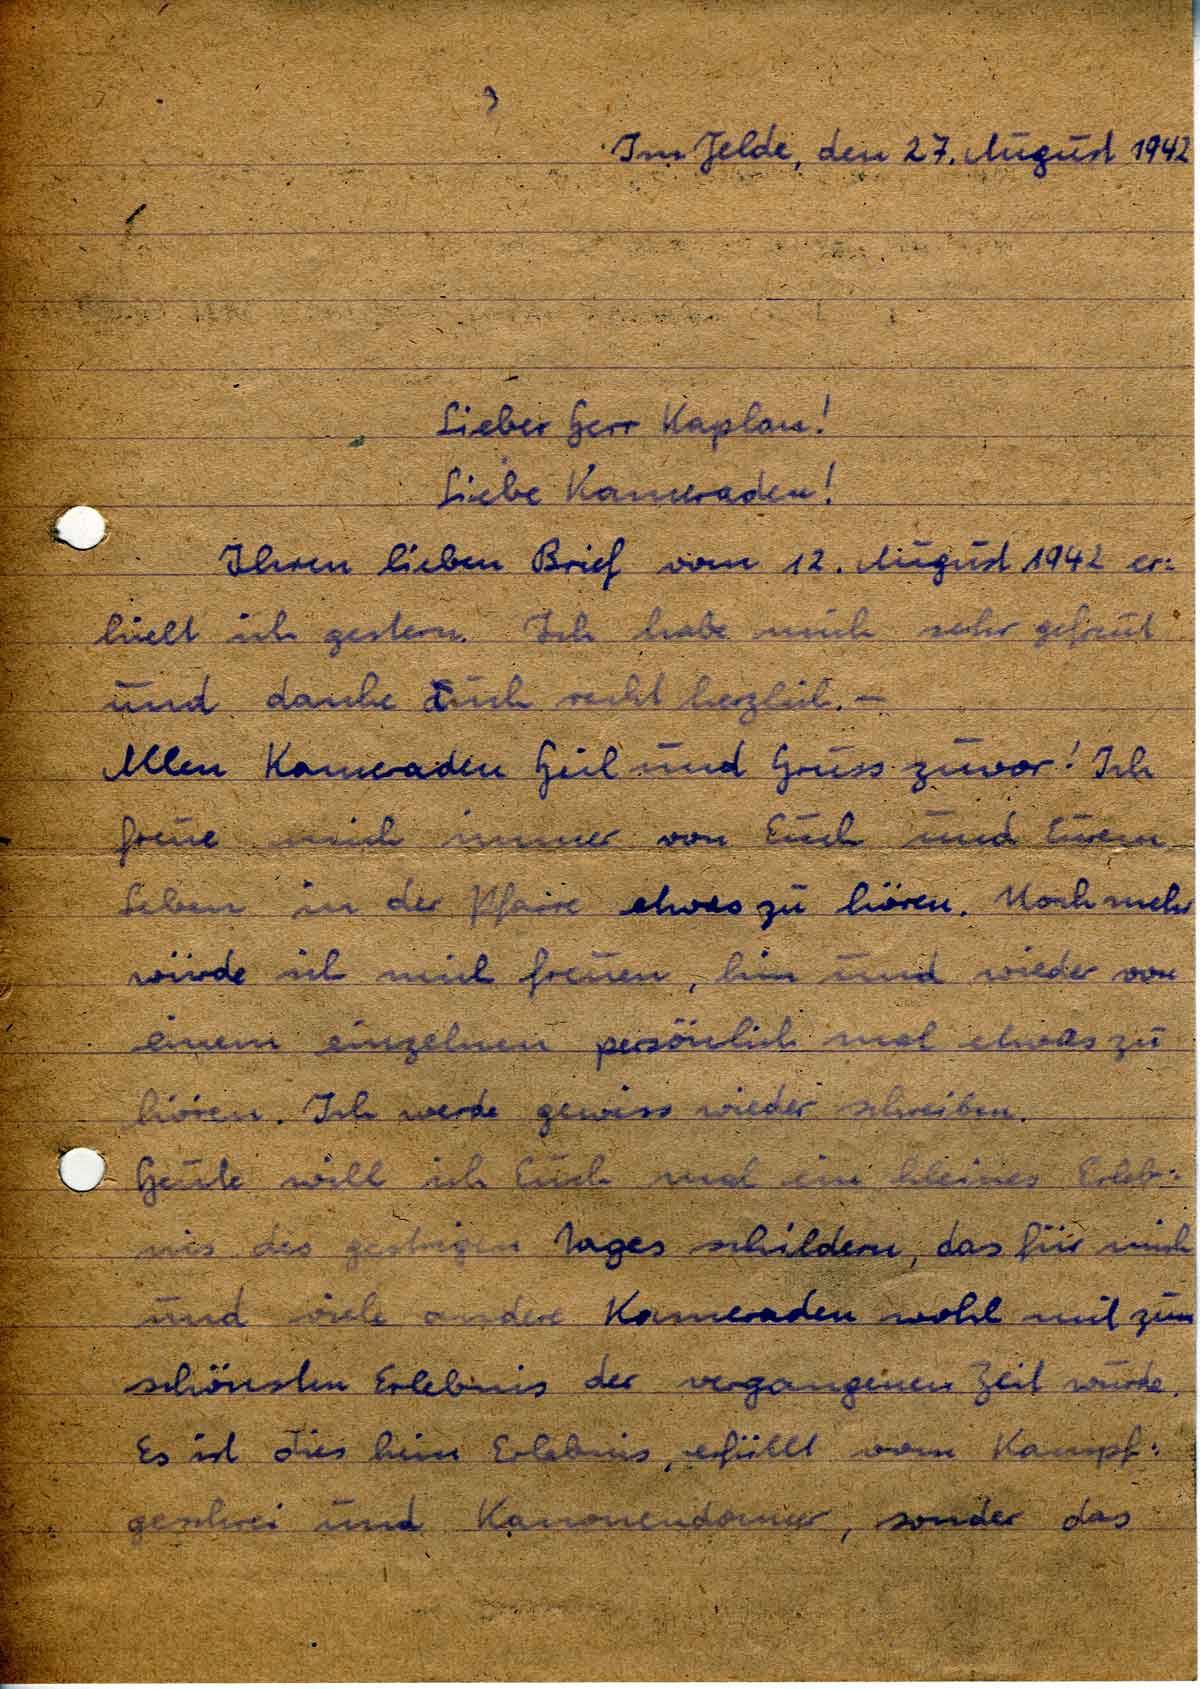 Im Felde, den 27. August 1942
Lieber Herr Kaplan!
Liebe Kameraden!
Ihren lieben Brief vom 12. August 1942 er=
hielt ich gestern. Ich habe mich sehr gefreut
und danke Euch recht herzlich. —
Allen Kameraden Heil und Gruss zuvor! Ich
freue mich immer von Euch und Eurem
Leben in der Pfarre etwas zu hören. Noch mehr
würde ich mich freuen, hin und wieder von
einem einzelnen persönlich mal etwas zu
hören. Ich werde gewiss wieder schreiben.
Heute will ich Euch mal ein kleines Erleb=
nis des gestrigen Tages schildern, das für mich
und viele andere Kameraden wohl mit zum
schönsten Erlebnis der vergangenen Zeit wurde.
Es ist dies kein Erlebnis, erfüllt vom Kampf=
geschrei und Kanonendonner, sonder das